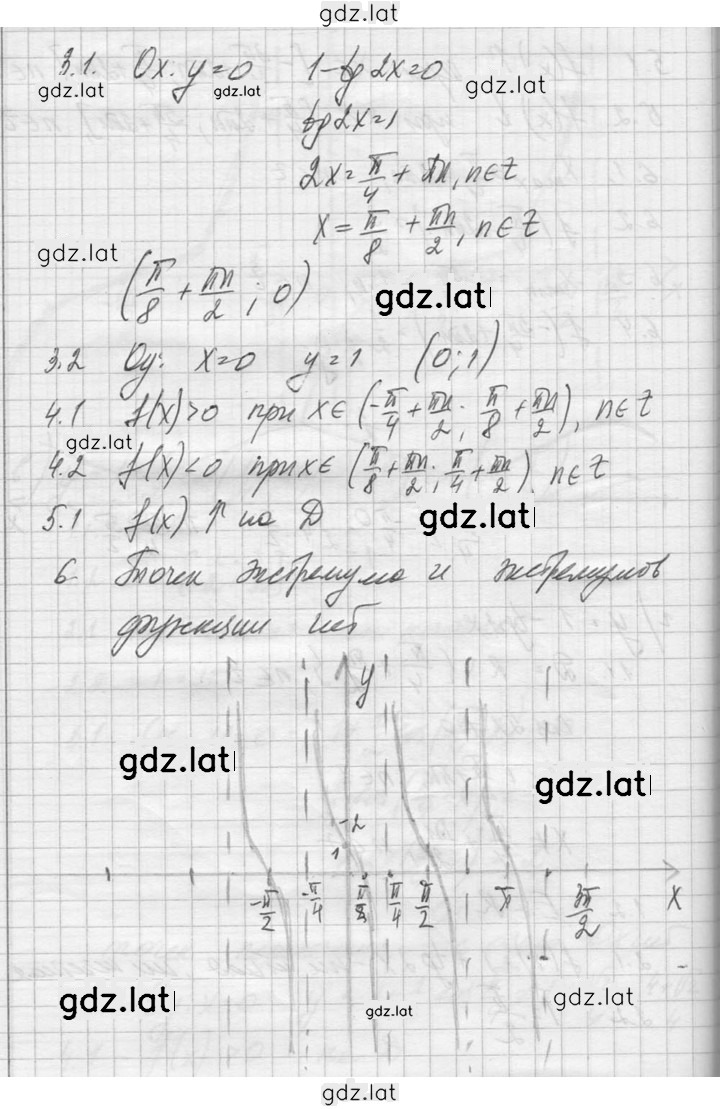 gdz.lat
3.1. Ox: y=0 1-tg2x=0
gdz.lat gdz.lat gdz.lat
tg2x=1
2x=π/4+πn, n∈Z
x=π/8+πn/2, n∈Z
gdz.lat
(π/8+πn/2; 0)
gdz.lat
3.2 Oy: x=0 y=1 (0;1)
4.1 f(x)>0 при x∈(-π/4+πn/2; π/8+πn/2), n∈Z
gdz.lat
4.2 f(x)<0 при x∈(π/8+πn/2; π/4+πn/2) n∈Z
5.1 f(x) ↑ на D
gdz.lat
6 Точек экстремума и экстремумов
функции нет
y
gdz.lat
gdz.lat
2
1
-π/2 -π/4 π/8 π/4 π/2 π 3π/2 x
gdz.lat gdz.lat gdz.lat
gdz.lat